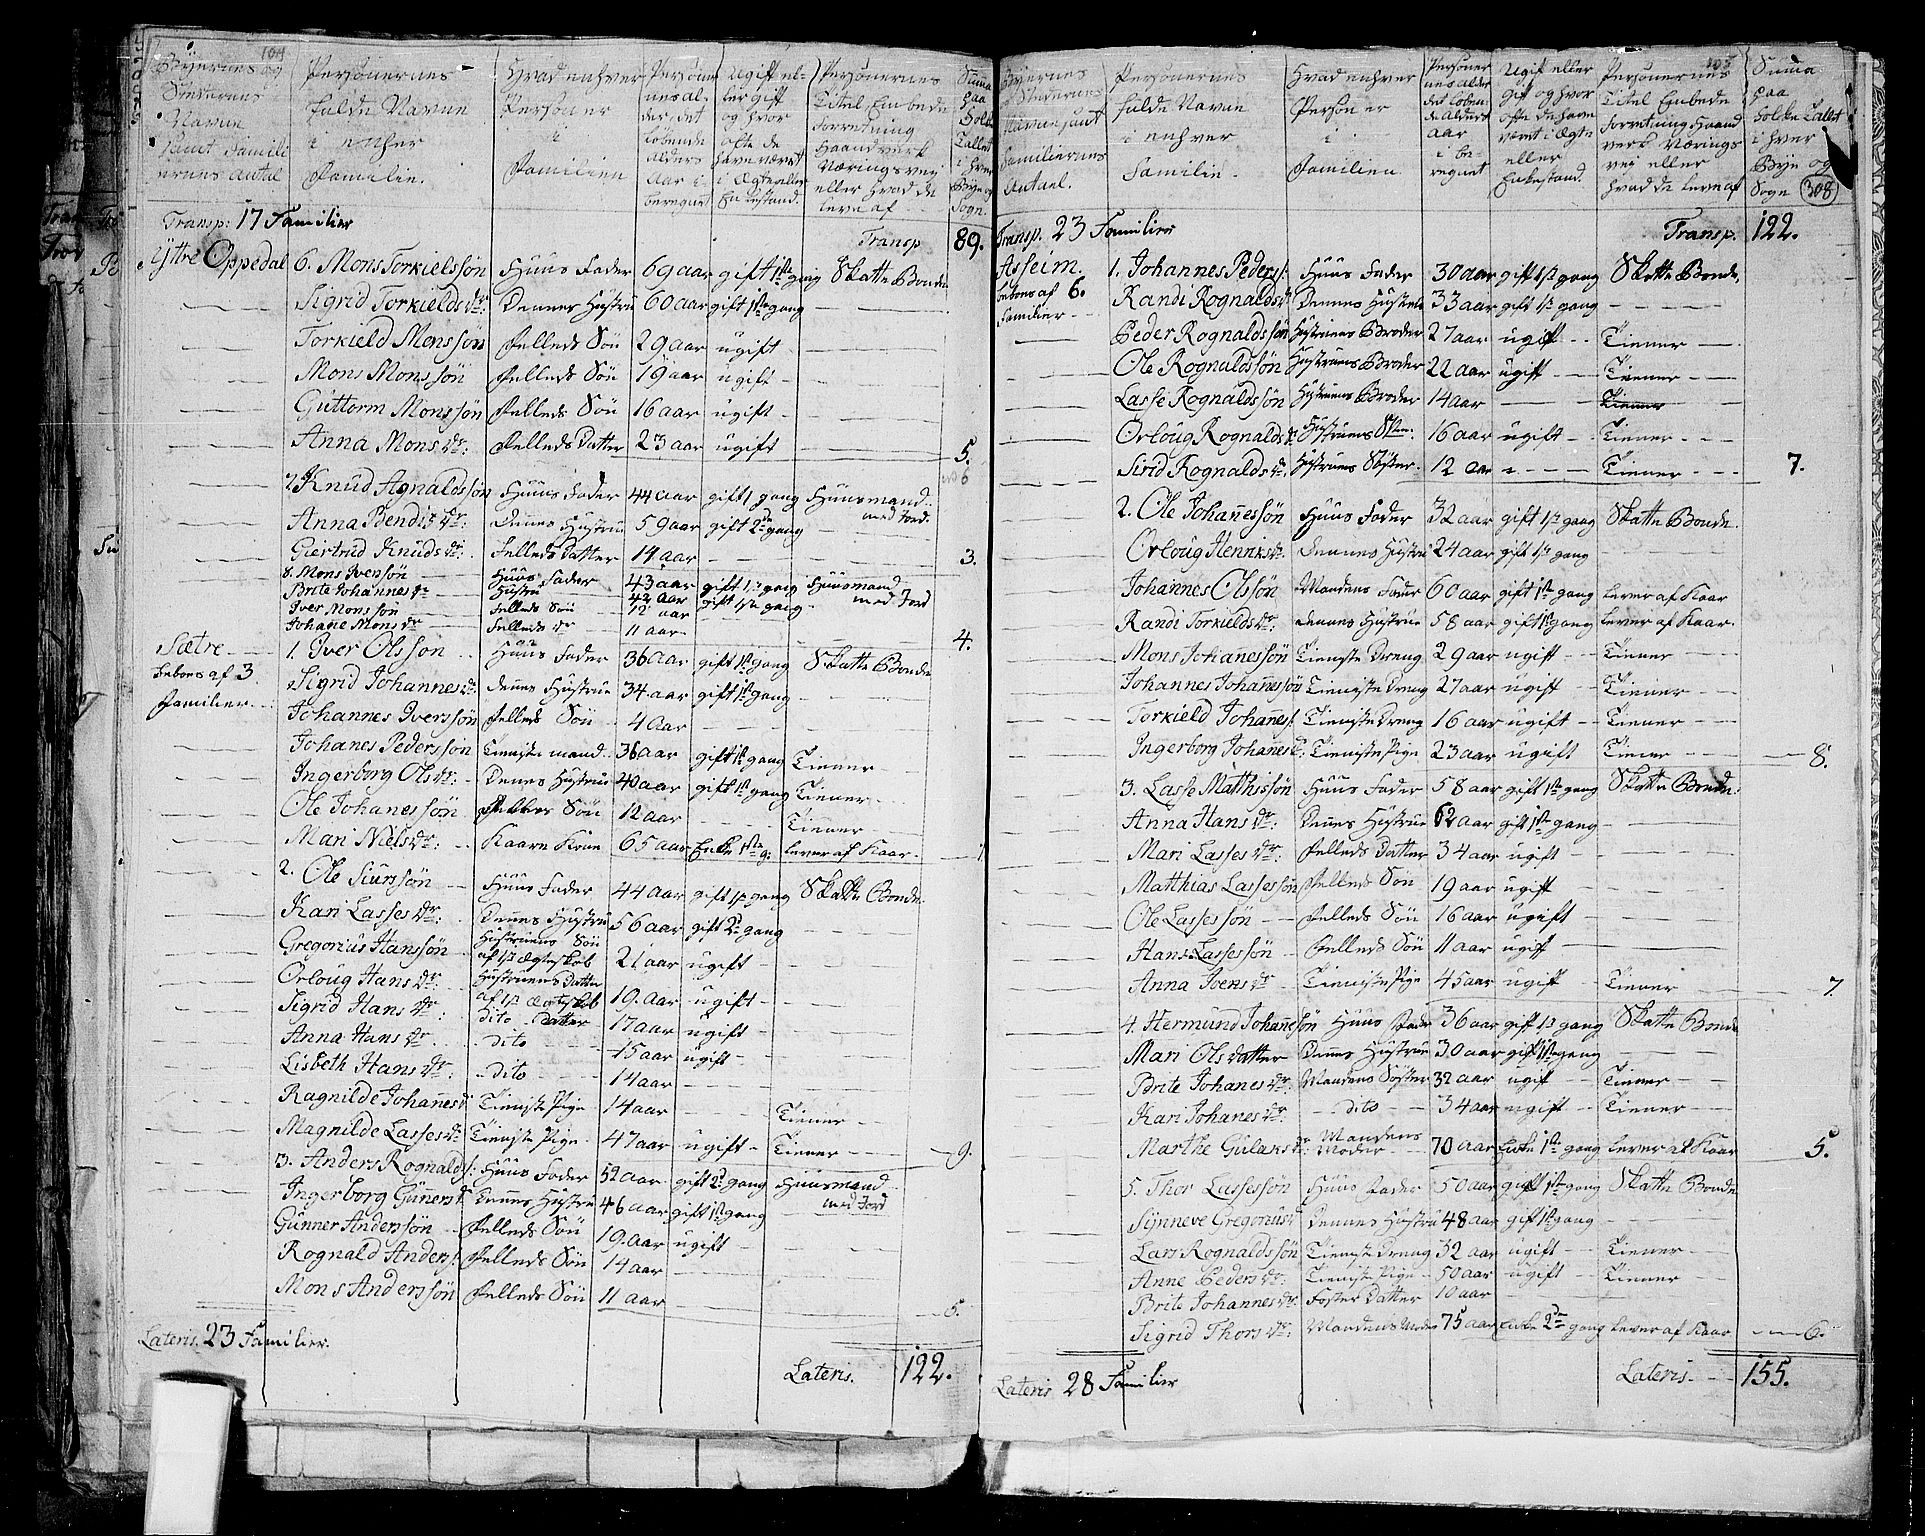 104
Byernes og Stedernes Navne samt Familiernes Antal
Personernes fulde Navne i enhver Familie.
Hvad enhver Person er i Familien
Personernes alder, det løbende Alders Aar i beregnet
Ugift eller gift og hvor ofte de have været i Ægte eller Enkestand.
Personernes Titel, Embede Forretning Haandverk Næringsvej eller hvad de leve af
Summa paa Folke Tallet i hver Bye og Sogn.
Transp: 17 Familier Transp 89.
Yttre Oppedal 6. Mons Torkielssøn Huus Fader 69 aar gift 1ste gang Skatte Bonde
Sigrid Torkields dr: Dennes Hustrue 60 aar gift 1ste gang
Torkield Monssøn Fælleds Søn 29 aar ugift
Mons Monssøn Fælleds Søn 19 aar ugift
Guttorm Monssøn Fælleds Søn 16 aar ugift
Anna Mons dr: Fælleds Datter 23 aar ugift 5.
6
7. Knud Agnaldssøn Huus Fader 44 aar gift 1 gang Huusmand med Jord.
Anna Bendix dr: Dennes Hustrue 59 aar gift 2de gang
Giertrud Knuds dr: Felleds Datter 14 aar 3.
8. Mons Ivensøn Huus Fader 43 aar gift 1ste gang Huusmand med Jord
Brite Johannes dr Hustru 42 aar gift 1ste gang
Iver Monssøn Felleds Søn 12 aar
Johane Mons dr Felleds dr 11 aar 4.
Sætre 1. Iver Olsson Huus Fader 36 aar gift 1ste gang Skatte Bonde
beboes af 3 Sigrid Johannes dr: dennes Hustrue 34 aar gift 1ste gang
Familier Johannes Iverssøn Felleds Søn 4 aar
Johanes Pederssøn Tieniste mand 36 aar gift 1ste gang Tiener
Ingerborg Ols dr: Dennes Hustrue 40 aar gift 1ste gang Tiener
Ole Johanessøn Felleds Søn 12 aar Tiener
Mari Niels dr: Kaare Kone 65 aar Enke 1ste g: lever af Kaar
2. Ole Siurssøn Huus Fader 44 aar gift 1ste gang Skatte Bonde
Kari Lasses dr: Dennes Hustrue 56 aar gift 2de gang
Gregorius Hanssøn Hustruens Søn af 1st Ægteskab 21 aar ugift
Orloug Hans dr: Hustruens Datter af 1st Ægteskab 19. aar ugift
Sigrid Hans dr: dito Datter 17 aar ugift
Anna Hans dr dito 15 aar ugift
Lisbeth Hans dr: dito 14 aar
Ragnilde Johannes dr Tieniste Pige 14 aar Tiener
Magnilde Lasses dr Tieniste Pige 47 aar ugift Tiener 9.
3. Anders Rognalds: Huus Fader 52 aar gift 2de gang Huusmand med Jord
Ingerborg Guners dr Dennes Hustru 46 aar gift 1ste gang
Gunner Anderssøn Felleds Søn 19. aar ugift
Rognald Anders: Felleds Søn 14 aar
Mons Anderssøn Felleds Søn 11 aar 5.
Lateris. 23 Familier. Lateris. 122.
105
Byernes Stedernes Navne samt Familiernes Antal.
Personernes fulde Navne i enhver Familie.
Hvad enhver Person er i Familien
Personernes alder det løbende Alders aar i beregnet
Ugift eller gift og hvor ofte de have været i Ægte eller Enkestand.
Personernes Titel Embede Forretning Haandverk Næringsvej eller hvad de lever af
Summa paa Folke Tallet i hver Bye og Sogn
308
Transp. 23 Familier Transp. 122.
Asseim. 1. Johannes Peders: Huus Fader 30 aar gift 1ste gang Skatte Bonde,
beboes af 6. Randi Rognalds dr Dennes Hustrue 33 aar gift 1ste gang
Familier Peder Rognaldssøn Hustruens Broder 27 aar ugift Tiener
Ole Rognaldssøn Hustruens Broder 22 aar ugift Tiener
Lasse Rognaldssøn Hustruens Broder 14 aar Tiener
Orloug Rognalds dr: Hustruens Søster: 16 aar ugift Tiener
Sirid Rognalds dr: Hustruens Søster. 12 aar Tiener 7.
2. Ole Johannessøn Huus Fader 32 aar gift 1ste gang Skatte Bonde.
Orloug Henriks dr: Dennes Hustrue 24 aar gift 1ste gang
Johannes Olssøn Mandens Fader 60 aar gift 1ste gang lever af Kaar
Randi Torkields dr: dennes Hustrue 58 aar gift 1ste gang lever af Kaar.
Mons Johannessøn Tieniste Dreng 29 aar ugift Tiener
Johannes Johannessøn Tieniste Dreng 27 aar ugift Tiener
Torkield Johannes: Tieniste Dreng 16 aar ugift Tiener
Ingerborg Johannes dr: Tieniste Pige 23 aar ugift Tiener 8.
3. Lasse Matthissøn Huus Fader 58 aar gift 1ste gang Skatte Bonde.
Anna Hans dr: Dennes Hustrue 62 aar gift 1ste gang
Mari Lasses dr: Felleds Datter 34 aar ugift
Matthias Lassessøn Felleds Søn 19 aar ugift
Ole Lassessøn Felleds Søn 16 aar ugift
Hans Lassessøn Felleds Søn 11 aar ugift
Anna Ivens dr Tieniste Pige 45 aar ugift Tiener 7.
4. Hermund Johannessøn Huus Fader 36 aar gift 1ste gang Skatte Bonde
Mari Ols datter Dennes Hustrue 30 aar gift 1ste gang
Brite Johanes dr: Mandens Søster 32 aar ugift Tiener
Kari Johanes dr: dito 34 aar ugift Tiener
Marthe Gulaks dr: Mandens Moder 70 aar Enke 1ste gang lever af Kaar 5.
5. Thor Lassessøn Huus Fader 50 aar gift 1ste gang Skatte Bonde
Synneve Gregorius dr Dennes Hustrue 48 aar gift 1ste gang
Lars Rognaldssøn Tieniste Dreng 32 aar ugift Tiener
Anne Peders dr: Tieniste Pige 50 aar ugift Tiener
Brite Johannes dr. Foster Datter 10 aar
Sigrid Thors dr: Mandens Moder 75 aar Enke 2de gang lever af Kaar 6.
Lateris 28 Familier Lateris. 155.